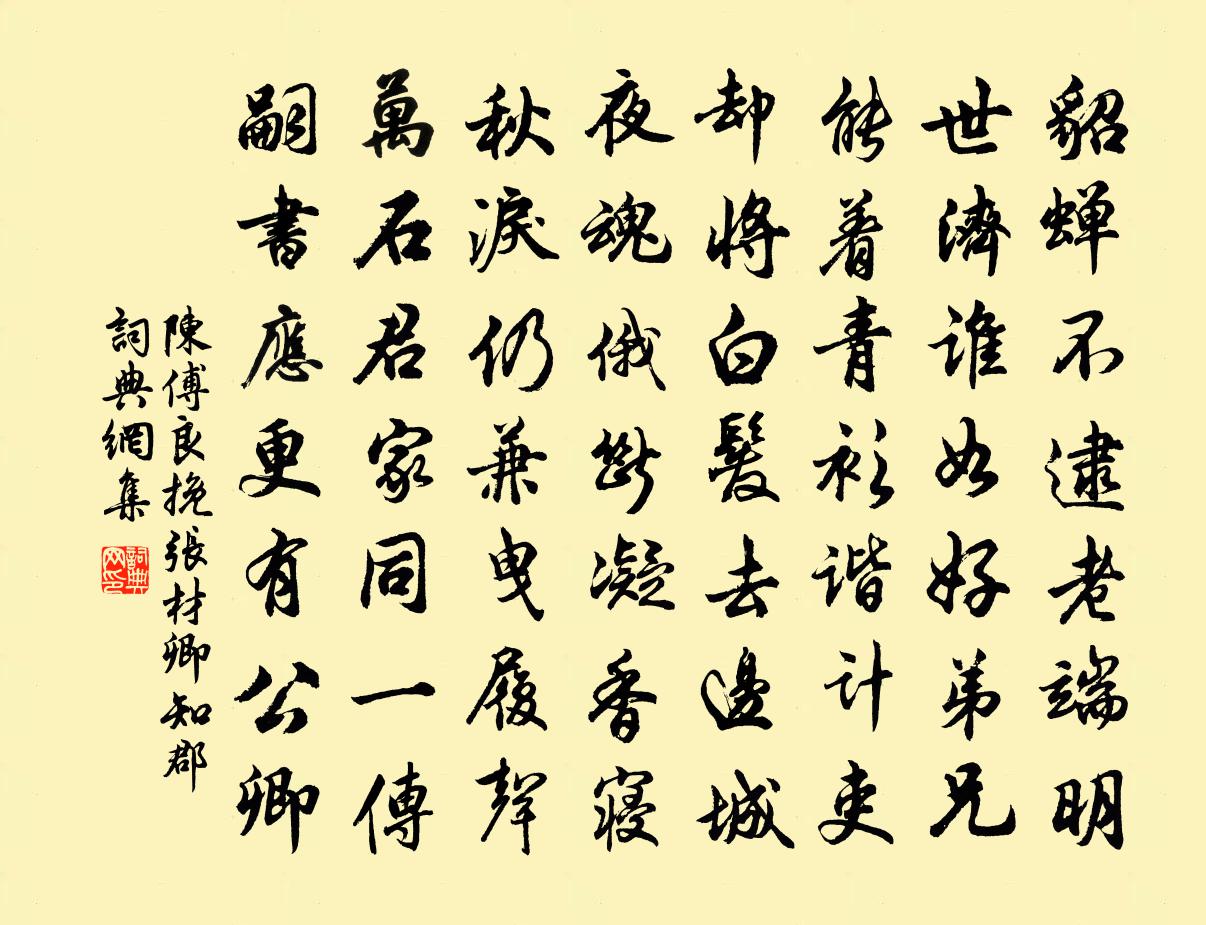 貂蝉不逮老端明
世濟誰如好弟兄
能着青衫谐计吏
却將白髮去邊城
夜魂俄斷凝香寢
秋淚仍兼曳履聲
萬石君家同一傳
嗣書應更有公卿
陳傅良挽張材卿知郡
詞典網集
詞典
网印